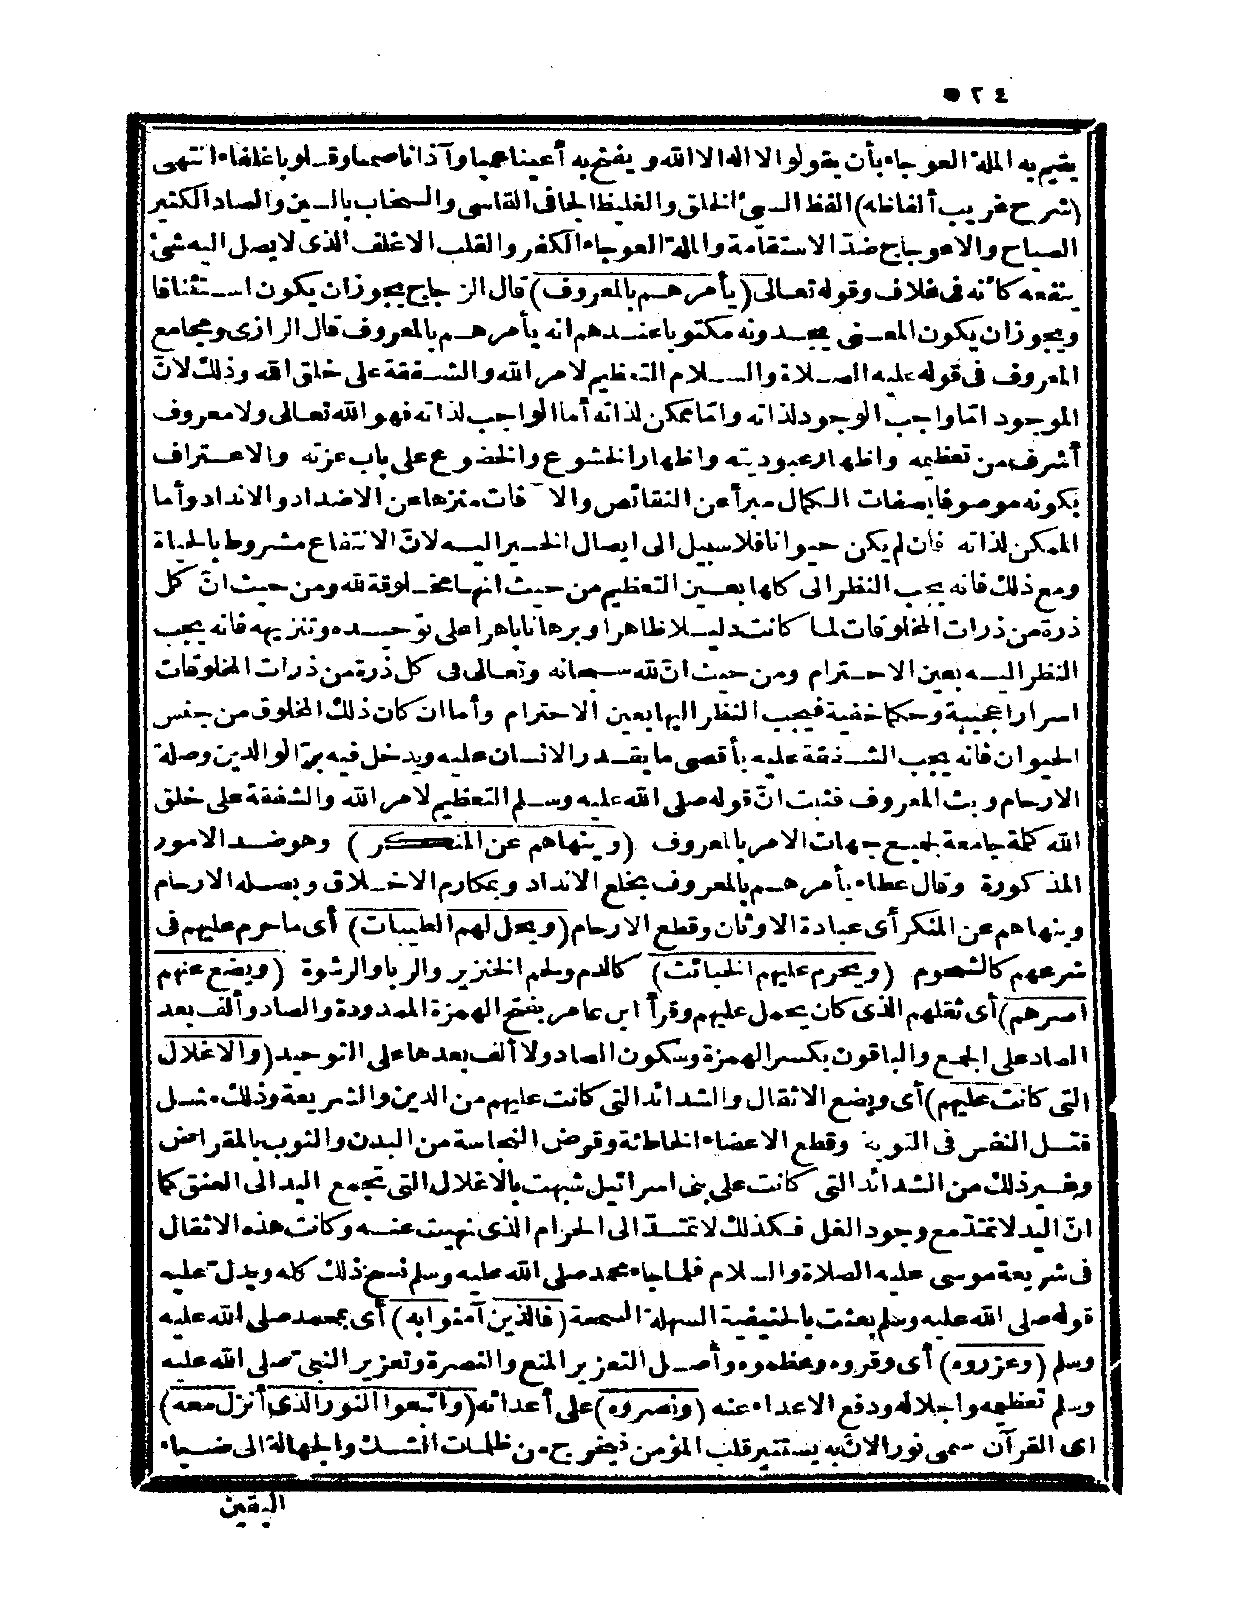 ٥٢٤
يقيم به الملة العوجاء بأن يقولوا لا اله الا الله ويفتح به أعينا عميا وآذانا صما وقلوبا غلفا، انتهى
(شرح غريب ألفاظه) الفظ السيئ الخلق والغليظ الجافى القاسى والسخاب بالسين والصاد الكثير
الصياح والاعوجاج ضدّ الاستقامة والملة العوجاء الكفر والقلب الاغلف الذى لا يصل اليه شئ
ينفعه كأنه فى غلاف وقوله تعالى (يأمرهم بالمعروف) قال الزجاج يجوز ان يكون استئنافا
ويجوز ان يكون المعنى يجدونه مكتوبا عندهم انه يأمرهم بالمعروف قال الرازى ومجامع
المعروف فى قوله عليه الصلاة والسلام التعظيم لامر الله والشفقة على خلق الله وذلك لانّ
الموجود امّا واجب الوجود لذاته وامّا ممكن لذاته أما الواجب لذاته فهو الله تعالى ولا معروف
أشرف من تعظيمه واظهار عبوديته واظهار الخشوع والخضوع على باب عزته والاعتراف
بكونه موصوفا بصفات الكمال مبرأ عن النقائص والآفات منزها عن الاضداد والانداد وأما
الممكن لذاته فان لم يكن حيوانا فلا سبيل الى ايصال الخير اليه لانّ الانتفاع مشروط بالحياة
ومع ذلك فانه يجب النظر الى كلها بعين التعظيم من حيث انها مخلوقة لله ومن حيث انّ كل
ذرة من ذرات المخلوقات لما كانت دليلا ظاهرا وبرهانا باهرا على توحيده وتنزيهه فانه يجب
النظر اليه بعين الاحترام ومن حيث انّ لله سبحانه وتعالى فى كل ذرة من ذرات المخلوقات
اسرارا عجيبة وحكما خفية فيجب النظر اليها بعين الاحترام وأما ان كان ذلك المخلوق من جنس
الحيوان فانه يجب الشفقة عليه بأقصى ما يقدر الانسان عليه ويدخل فيه برّ الوالدين وصلة
الارحام وبث المعروف فثبت انّ قوله صلى الله عليه وسلم التعظيم لامر الله والشفقة على خلق
الله كلمة جامعة لجميع جهات الامر بالمعروف (وينهاهم عن المنكر) وهو ضد الامور
المذكورة وقال عطاء يأمرهم بالمعروف بخلع الانداد وبمكارم الاخلاق وبصلة الارحام
وينهاهم عن المنكر أى عبادة الاوثان وقطع الارحام (ويحل لهم الطيبات) أى ما حرم عليهم فى
شرعهم كالشحوم (ويحرم عليهم الخبائث) كالدم ولحم الخنزير والربا والرشوة (ويضع عنهم
اصرهم) أى ثقلهم الذى كان يحمل عليهم وقرأ ابن عامر بفتح الهمزة الممدودة والصاد وألف بعد
الصاد على الجمع والباقون بكسر الهمزة وسكون الصاد ولا ألف بعدها على التوحيد (والاغلال
التى كانت عليهم) أى ويضع الاثقال والشدائد التى كانت عليهم من الدين والشريعة وذلك مثل
قتل النفس فى التوبة وقطع الاعضاء الخاطئة وقرض النجاسة من البدن والثوب بالمقراض
وغير ذلك من الشدائد التى كانت على بنى اسرائيل شبهت بالاغلال التى تجمع اليد الى العنق كما
انّ اليد لا تمتدّ مع وجود الغل فكذلك لا تمتدّ الى الحرام الذى نهيت عنه وكانت هذه الاثقال
فى شريعة موسى عليه الصلاة والسلام فلما جاء محمد صلى الله عليه وسلم نسخ ذلك كله ويدل عليه
قوله صلى الله عليه وسلم بعثت بالحنيفية السهلة السمحة (فالذين آمنوا به) أى بمحمد صلى الله عليه
وسلم (وعزروه) أى وقروه وعظموه وأصل التعزير المنع والنصرة وتعزير النبىّ صلى الله عليه
وسلم تعظيمه واجلاله ودفع الاعداء عنه (ونصروه) على أعدائه (واتبعوا النور الذى أنزل معه)
اى القرآن سمى نورا لانّ به يستنير قلب المؤمن فيخرج من ظلمات الشك والجهالة الى ضياء
اليقين